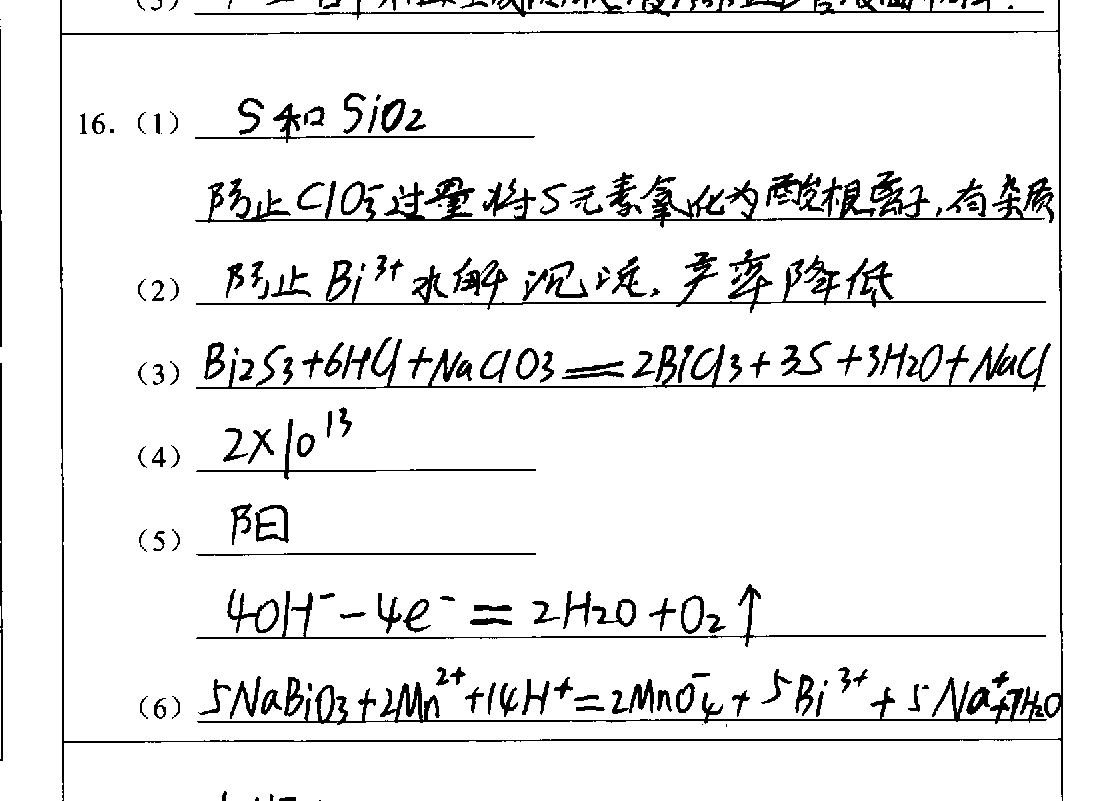 16.（1） S和SiO₂
防止ClO₃⁻过量将S元素氧化为酸根离子,有杂质
（2） 防止Bi³⁺水解沉淀,产率降低
（3） Bi₂S₃+6HCl+NaClO₃=2BiCl₃+3S+3H₂O+NaCl
（4） 2×10¹³
（5） 阳
4OH⁻-4e⁻=2H₂O+O₂↑
（6） 5NaBiO₃+2Mn²⁺+14H⁺=2MnO₄⁻+5Bi³⁺+5Na⁺+7H₂O